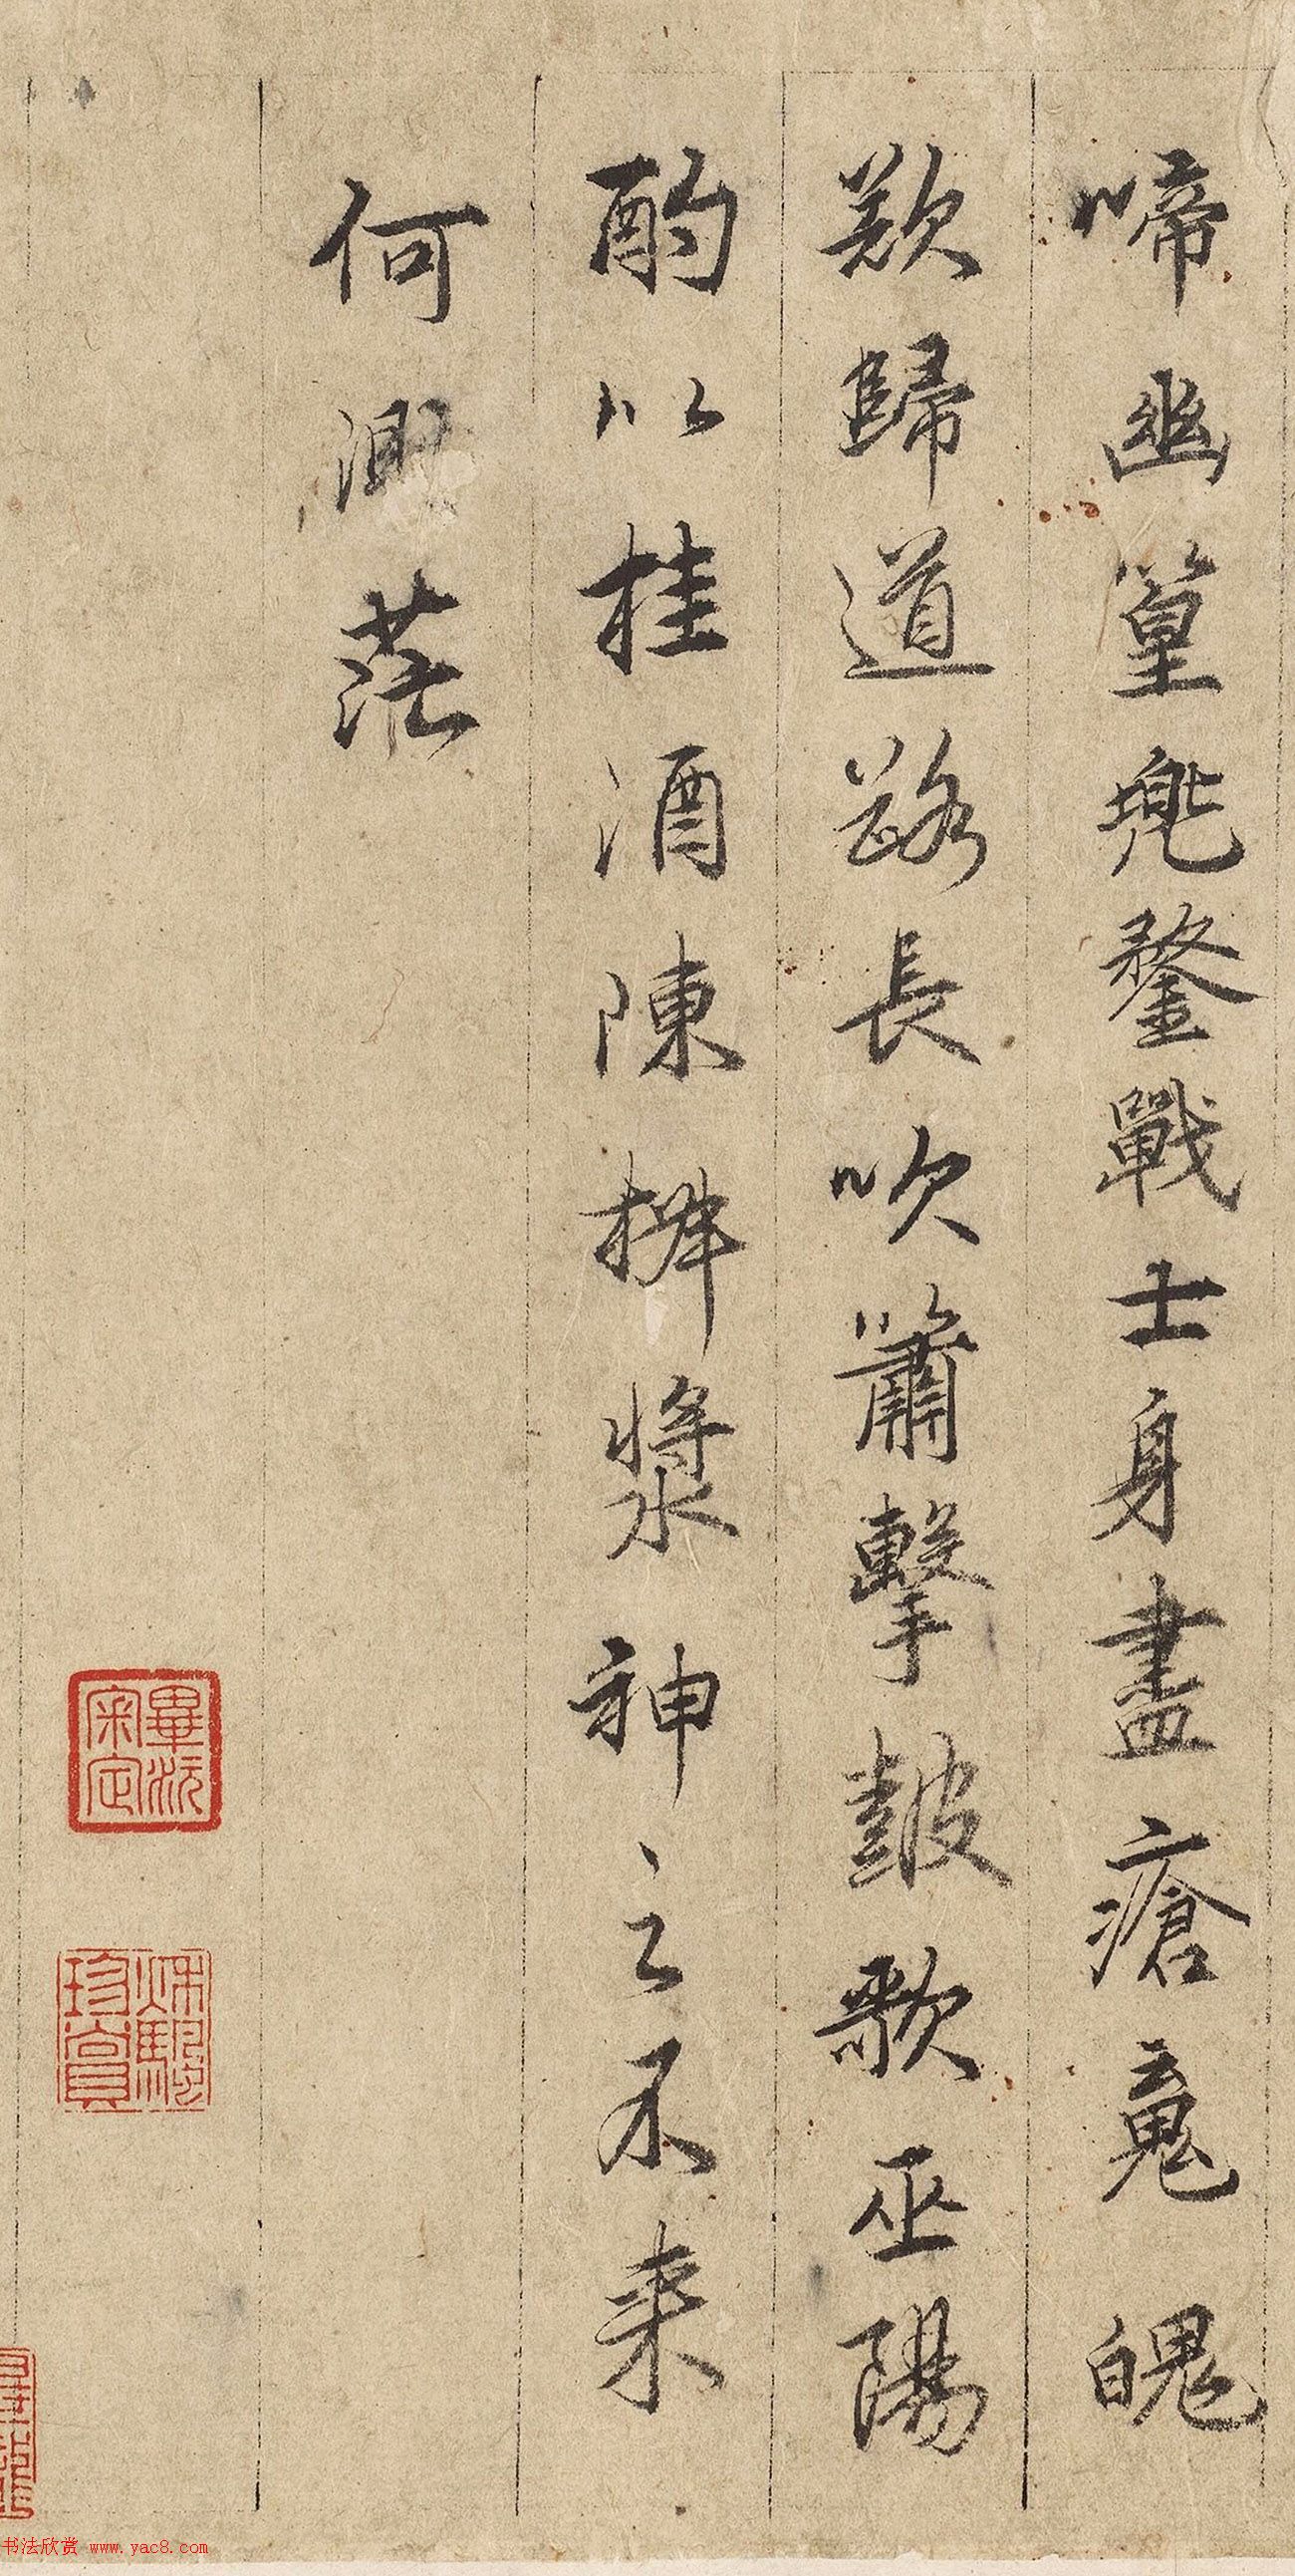 啼幽篁兜鍪戰士身盡瘡䰟魄
歎歸道路長吹簫擊鼓歌巫陽
酌以桂酒陳椒漿神之不来
何渺茫
畢沅
宷定
珍賞
书法欣赏 www.yac8.com